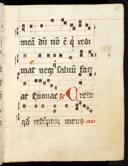 meā dū nō ē q̄ redi
mat neq̄ saluū faci
at Quonaē Credo
qđ redēptor meus